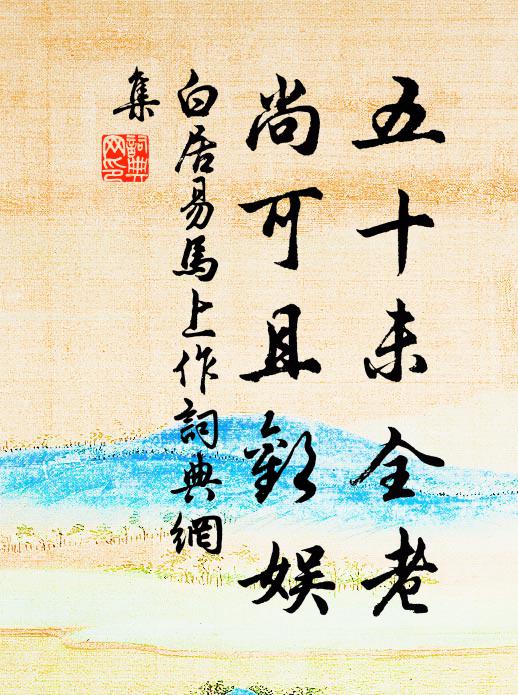 五十未全老
尚可且歡娱
白居易馬上作詞典網
集
詞典
网印